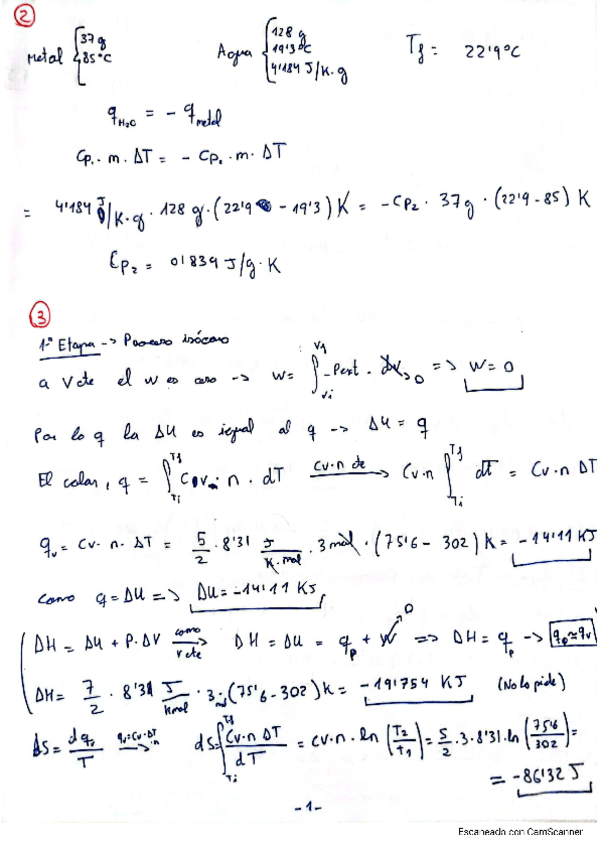 2
Metal { 37 g 85°C
Agua { 128 g 19'3°C 4'184 J/K·g
Tf = 22'9°C
q H2O = - q metal
Cp₁ · m · ΔT = - Cp₂ · m · ΔT
= 4'184 J/K·g · 128 g · (22'9 - 19'3) K = - Cp₂ · 37 g · (22'9 - 85) K
Cp₂ = 0'839 J/g·K
3
1ª Etapa -> Proceso isócoro
a V cte el w es cero -> w = ∫Vi^Vf -Pext · dV → 0 => w = 0
Por lo q la ΔU es igual al q -> ΔU = q
El calor, q = ∫Ti^Tf Cv · n · dT —Cv·n de→ Cv·n ∫Ti^Tf dT = Cv·n ΔT
qv = Cv · n · ΔT = 5/2 · 8'31 J/K·mol · 3 mol · (75'6 - 302) K = -14'11 KJ
como q = ΔU => ΔU = -14'11 KJ
ΔH = ΔU + P·ΔV —como V cte→ ΔH = ΔU = qp + W → 0 => ΔH = qp -> qp ≈ qv
ΔH = 7/2 · 8'31 J/K mol · 3 · (75'6 - 302) K = -19'754 KJ (No lo pide)
ΔS = dqv/T —qv=Cv·ΔT·n→ dS = ∫Ti^Tf Cv·n ΔT/dT = Cv·n·ln (T2/T1) = 5/2 · 3 · 8'31 · ln (75'6/302) =
= -86'32 J
-1-
Escaneado con CamScanner